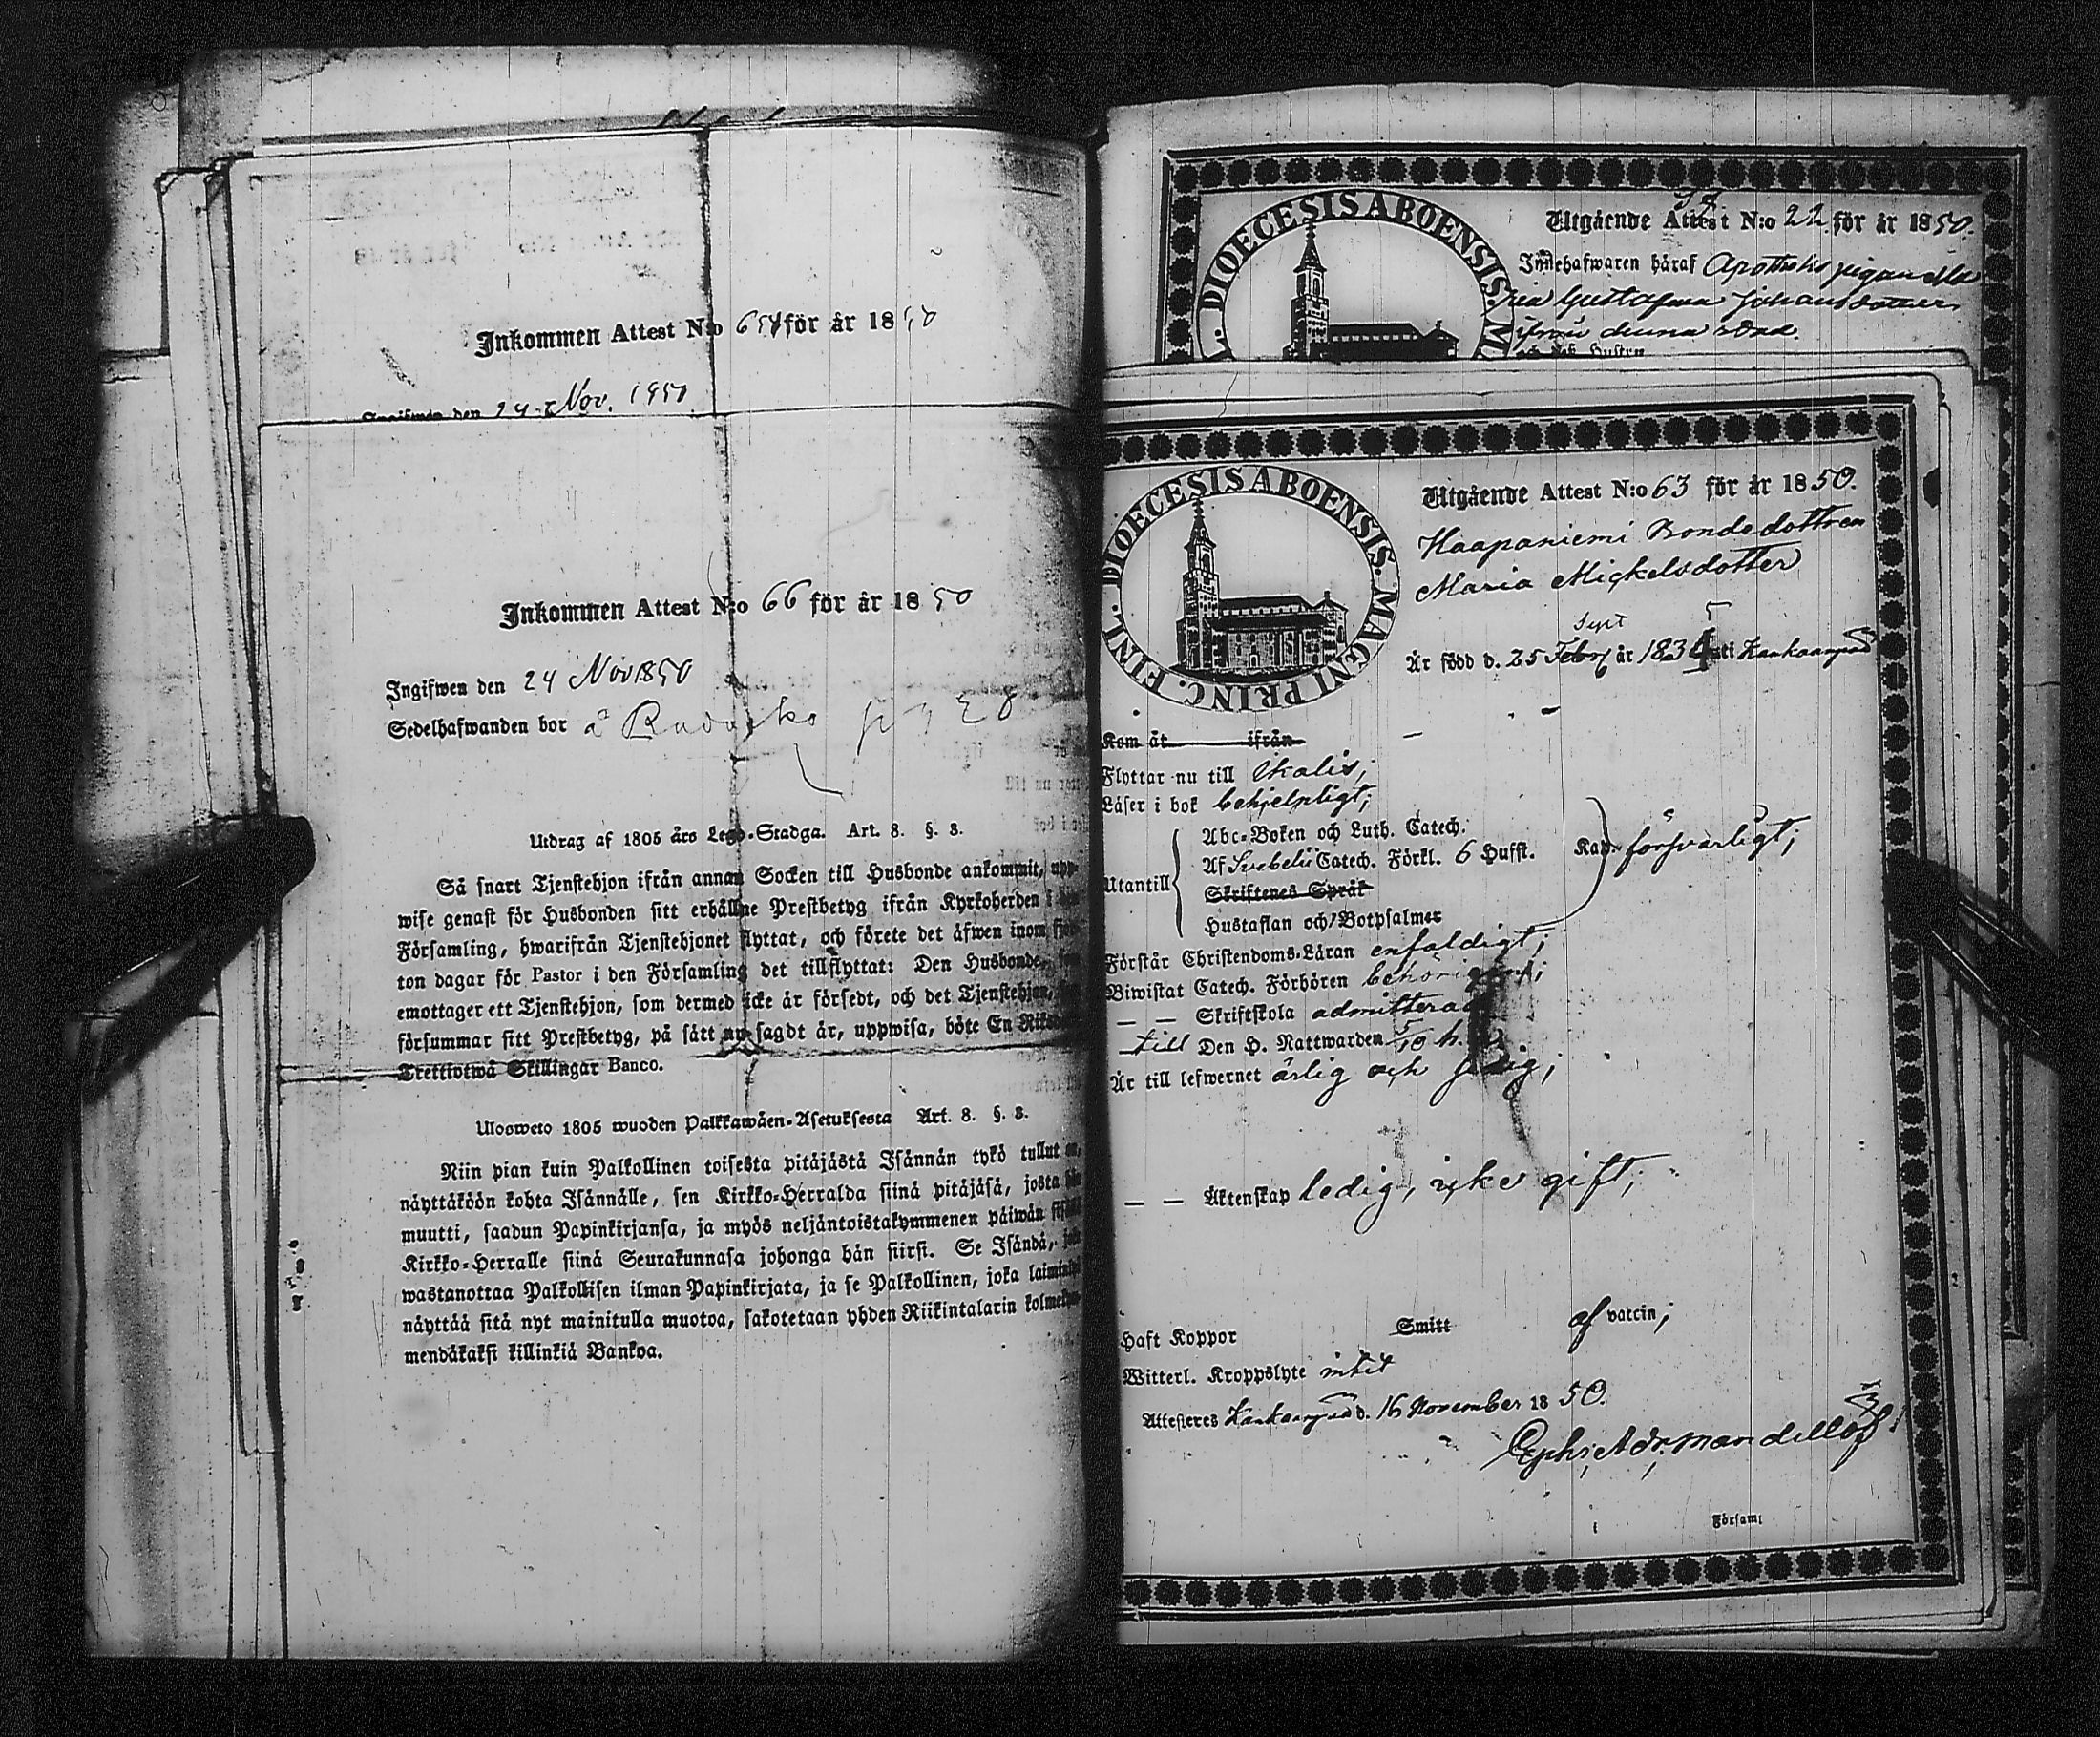 Inkommen Attest N:o 65 för år 1850
Ingifwen den 24 Nov. 1850
Inkommen Attest N:o 66 för år 1850
Ingifwen den 24 Nov 1850
Sedelhafwanden bor å
Utdrag af 1805 års Lego-Stadga. Art. 8. §. 8.
Så snart Tjenstehjon ifrån annan Socken till Husbonde ankommit, upp-
wise genast för Husbonden sitt erhållne Prestbetyg ifrån Kyrkoherden i
Församling, hwarifrån Tjenstehjonet flyttat, och förete det äfwen inom
ton dagar för Pastor i den Församling det tillflyttat: Den Husbonde,
emottager ett Tjenstehjon, som dermed icke är försedt, och det Tjenstehjon,
försummar sitt Prestbetyg, på sätt nu sagdt är, uppwisa, böte En
Trettiotwå Skillingar Banco.
Ulosweto 1805 wuoden Palkkawäen-Asetuksesta Art. 8. §. 8.
Niin pian kuin Palkollinen toisesta pitäjästä Isännän tykö tullut on,
näyttäköön kohta Isännälle, sen Kirkko-Herralda siinä pitäjäsä, josta hän
muutti, saadun Papinkirjansa, ja myös neljäntoistakymmenen päiwän
Kirkko-Herralle siinä Seurakunnasa johonga hän siirsi. Se Isändä,
wastanottaa Palkollisen ilman Papinkirjata, ja se Palkollinen, joka
näyttää sitä nyt mainitulla muotoa, sakotetaan yhden Riikintalarin
mendäkaksi killinkiä Bankoa.
DIOECESIS ABOENSIS. M
Utgående Attest N:o 22 för år 1850.
Innehafwaren häraf Apotheks pigan Ma
ria Gustafwa Johansdotter
ifrån denna stad.
och dess Hustru
DIOECESIS ABOENSIS. MAGNI PRINC. FINL.
Utgående Attest N:o 63 för år 1850.
Haapaniemi Bondedottren
Maria Mickelsdotter
Sept 5
Är född d. 25 Febr år 183 uti Kankaanpää
Kom åt ifrån
Flyttar nu till Ikalis;
Läser i bok behjelpligt;
Utantill
Abc-Boken och Luth. Catech.
Af Svebelii Catech. Förkl. 6 Hufst. Kap. försvarligt;
Skriftenes Språk
Hustaflan och Botpsalmer
Förstår Christendoms-Läran enfaldigt;
Biwistat Catech. Förhören behörigen;
— — Skriftskola admitterad
till Den H. Nattwarden 5/10 h.
Är till lefwernet ärlig och
— — Äktenskap ledig, icke gift;
Haft Koppor Smitt af vaccin;
Witterl. Kroppslyte intet
Attesteras Kankaanpää d. 16 November 1850.
Ephr. Adr. Mandellöf
Församl